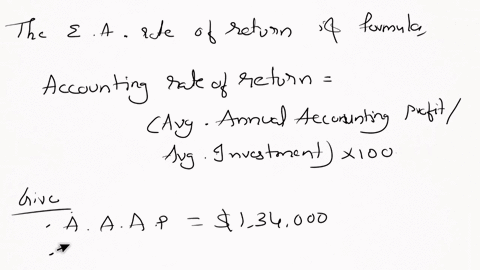 The E.A. rate of return of formula,
Accounting rate of return =
(Avg. Annual Accounting profit/
Avg. Investment) x100
Give
. A. A. A P = $1,34,000
.